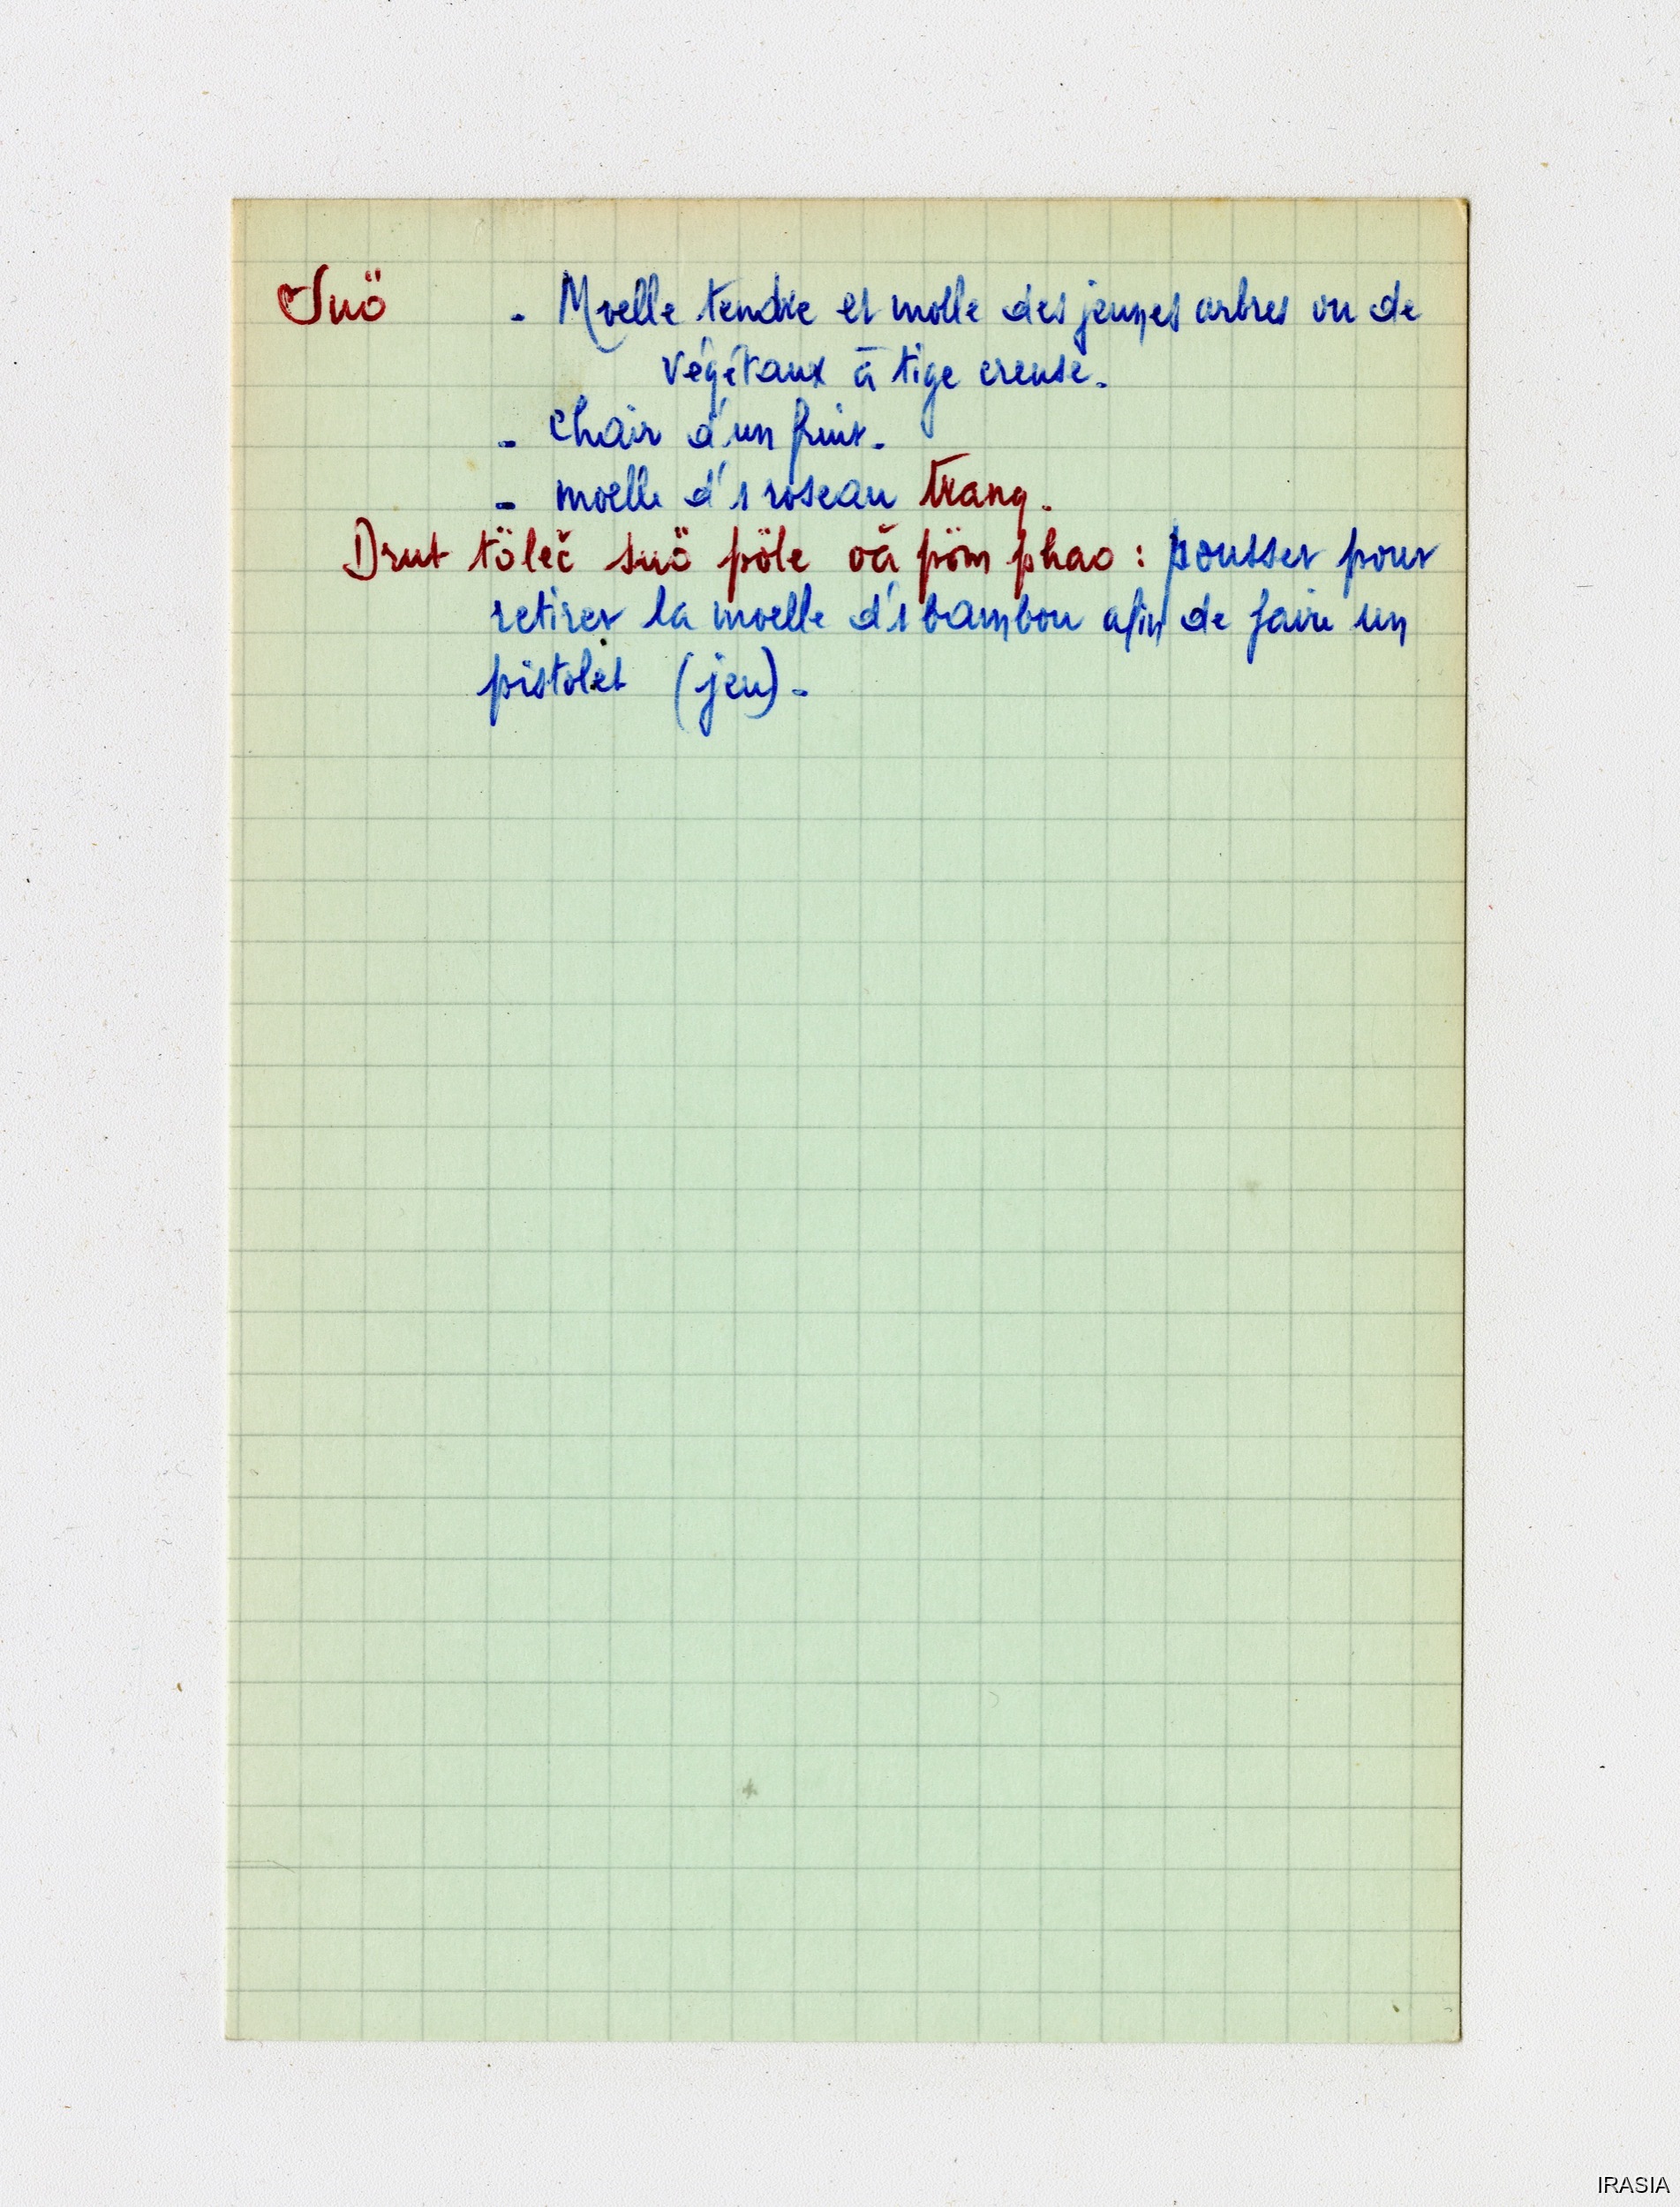 Suö - Moelle tendre et molle des jeunes arbres ou de
végétaux à tige creuse.
- Chair d'un fruit.
- moelle d'1 roseau trang.
Drut töleč suö pöle oă pöm phao : pousser pour
retirer la moelle d'1 bambou afin de faire un
pistolet (jeu).
IRASIA